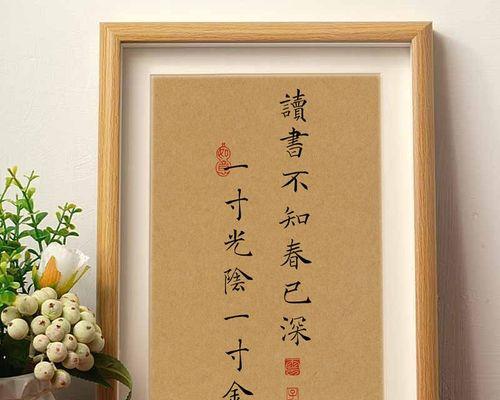 讀書不知春已深
一寸光陰一寸金
如意